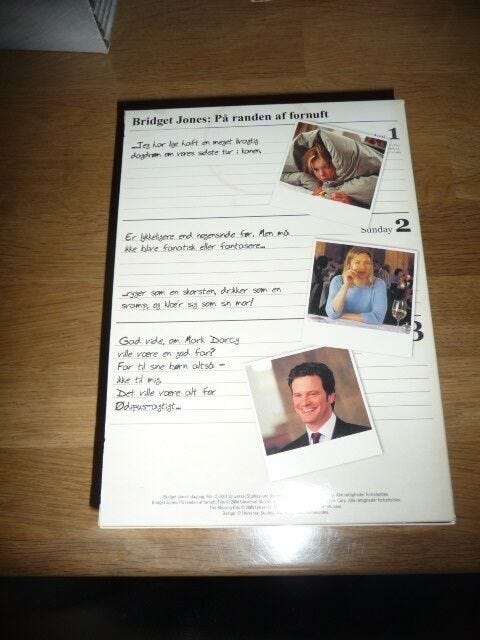 Bridget Jones: På randen af fornuft
1
Jeg har lige haft en meget livagtig
dagdrøm om vores sidste tur i kanen.
Sunday 2
Er lykkeligere end nogensinde før. Men må
ikke blive fanatisk eller fantasere...
...ryger som en skorsten, drikker som en
svamp, og klæ'r sig som sin mor!
3
Gad vide, om Mark Darcy
ville være en god far?
Far til sine børn altså -
ikke til mig.
Det ville være alt for
Ødipus-agtigt...